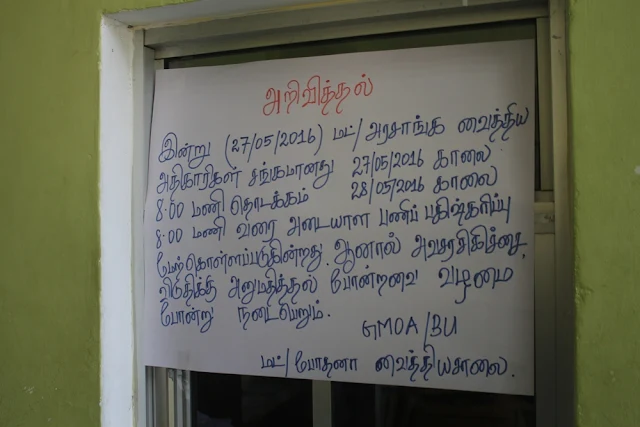 அறிவித்தல்
இன்று (27/05/2016) மட்/அரசாங்க வைத்திய
அதிகாரிகள் சங்கமானது 27/05/2016 காலை
8:00 மணி தொடக்கம் 28/05/2016 காலை
8:00 மணி வரை அடையாள பணிப் பகிஷ்கரிப்பு
மேற்கொள்ளப்படுகின்றது. ஆனால் அவசரசிகிச்சை,
விடுதிக்கு அனுமதித்தல் போன்றவை வழமை
போன்று நடைபெறும்.
GMOA/BU
மட்/போதனா வைத்தியசாலை.